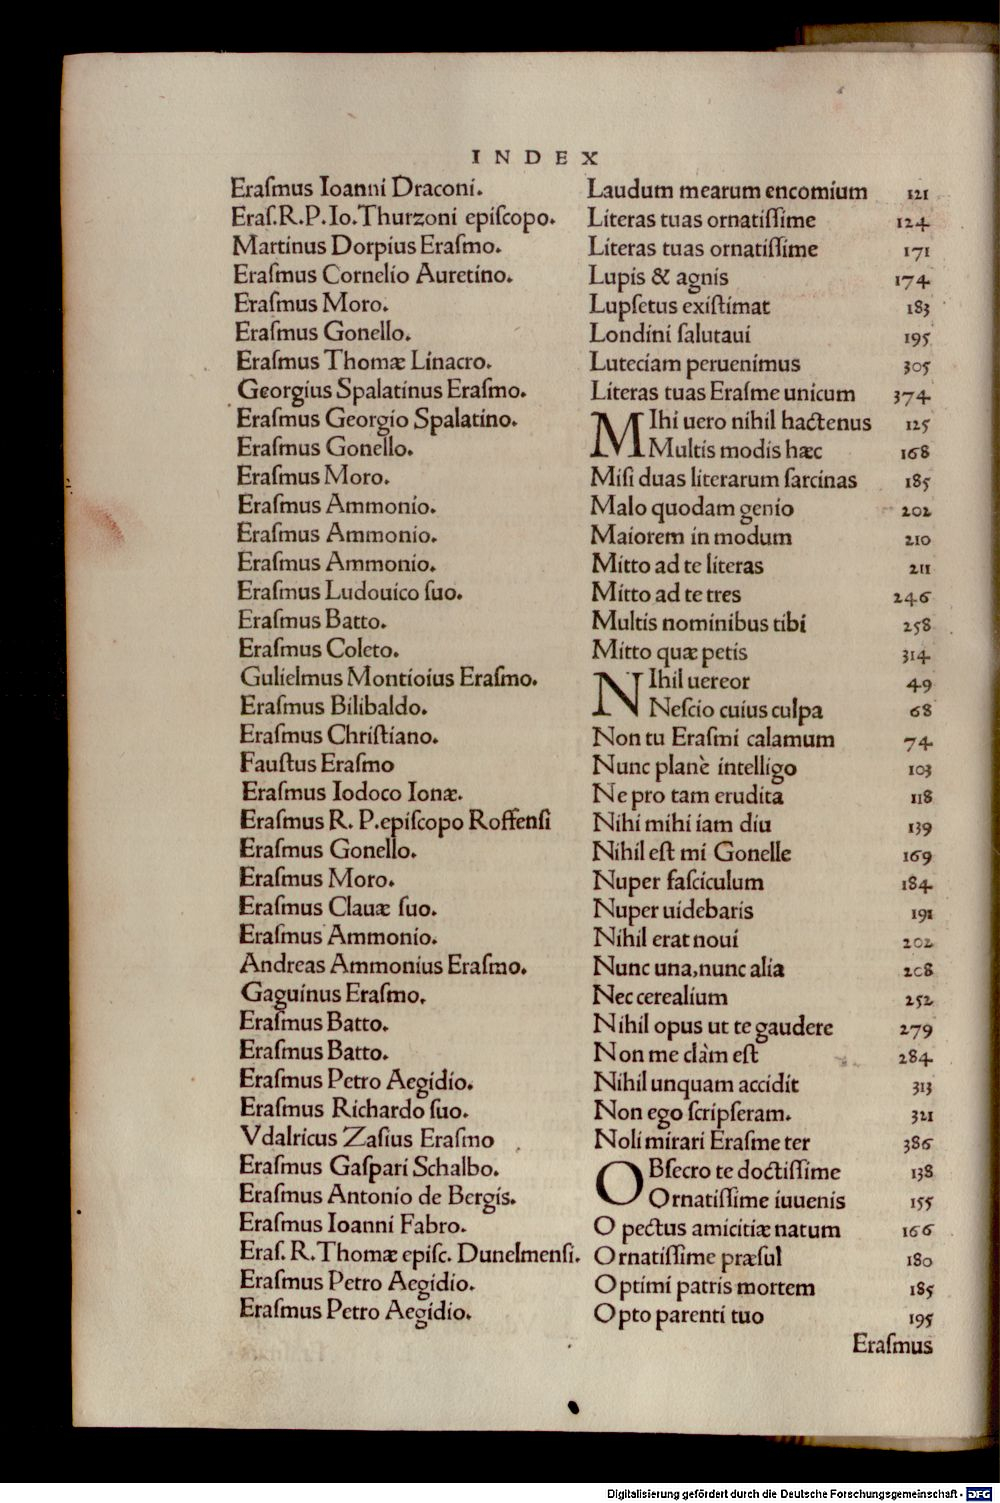 INDEX
Eraſmus Ioanni Draconi. Laudum mearum encomium 121
Eraſ.R.P.Io.Thurzoni epiſcopo. Literas tuas ornatiſſime 124
Martinus Dorpius Eraſmo. Literas tuas ornatiſſime 171
Eraſmus Cornelio Auretino. Lupis & agnis 174
Eraſmus Moro. Lupſetus exiſtimat 183
Eraſmus Gonello. Londini ſalutaui 195
Eraſmus Thomæ Linacro. Luteciam peruenimus 305
Georgius Spalatinus Eraſmo. Literas tuas Eraſme unicum 374
Eraſmus Georgio Spalatino. MIhi uero nihil hactenus 125
Eraſmus Gonello. Multis modis hæc 168
Eraſmus Moro. Miſi duas literarum ſarcinas 185
Eraſmus Ammonio. Malo quodam genio 202
Eraſmus Ammonio. Maiorem in modum 210
Eraſmus Ammonio. Mitto ad te literas 211
Eraſmus Ludouico ſuo. Mitto ad te tres 246
Eraſmus Batto. Multis nominibus tibi 258
Eraſmus Coleto. Mitto quæ petis 314
Gulielmus Montioius Eraſmo. NIhil uereor 49
Eraſmus Bilibaldo. Neſcio cuius culpa 68
Eraſmus Chriſtiano. Non tu Eraſmi calamum 74
Fauſtus Eraſmo Nunc planè intelligo 103
Eraſmus Iodoco Ionæ. Ne pro tam erudita 118
Eraſmus R. P.epiſcopo Roffenſi Nihi mihi iam diu 139
Eraſmus Gonello. Nihil eſt mi Gonelle 169
Eraſmus Moro. Nuper faſciculum 184
Eraſmus Clauæ ſuo. Nuper uidebaris 191
Eraſmus Ammonio. Nihil erat noui 202
Andreas Ammonius Eraſmo. Nunc una,nunc alia 208
Gaguinus Eraſmo. Nec cerealium 252
Eraſmus Batto. Nihil opus ut te gaudere 279
Eraſmus Batto. Non me clàm eſt 284
Eraſmus Petro Aegidio. Nihil unquam accidit 313
Eraſmus Richardo ſuo. Non ego ſcripſeram. 321
Vdalricus Zaſius Eraſmo Noli mirari Eraſme ter 386
Eraſmus Gaſpari Schalbo. OBſecro te doctiſſime 138
Eraſmus Antonio de Bergis. Ornatiſſime iuuenis 155
Eraſmus Ioanni Fabro. O pectus amicitiæ natum 166
Eraſ. R.Thomæ epiſc. Dunelmenſi. Ornatiſſime præſul 180
Eraſmus Petro Aegidio. Optimi patris mortem 185
Eraſmus Petro Aegidio. Opto parenti tuo 195
Eraſmus
Digitalisierung gefördert durch die Deutsche Forschungsgemeinschaft - DFG